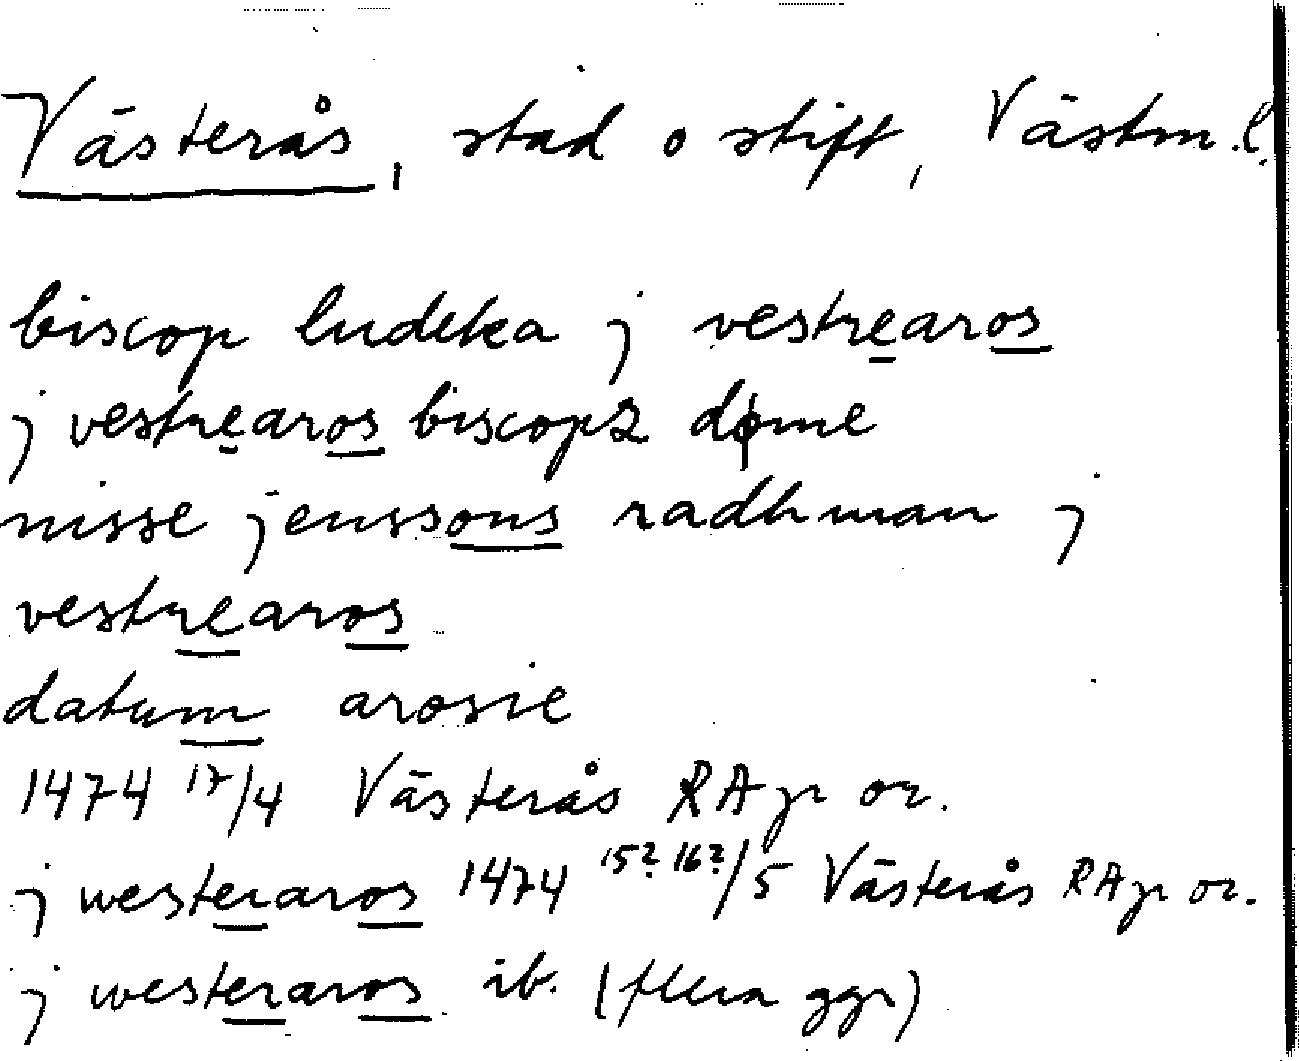 Västerås, stad o stift, Västm.l.
biscop ludeka j vestrearos
j vestrearos biscops døme
nisse jenssons radhman j
vestrearos
datum arosie
1474 17/4 Västerås RAp or.
j westeraros 1474 15? 16?/5 Västerås RAp or.
j westeraros ib. (flera ggr)